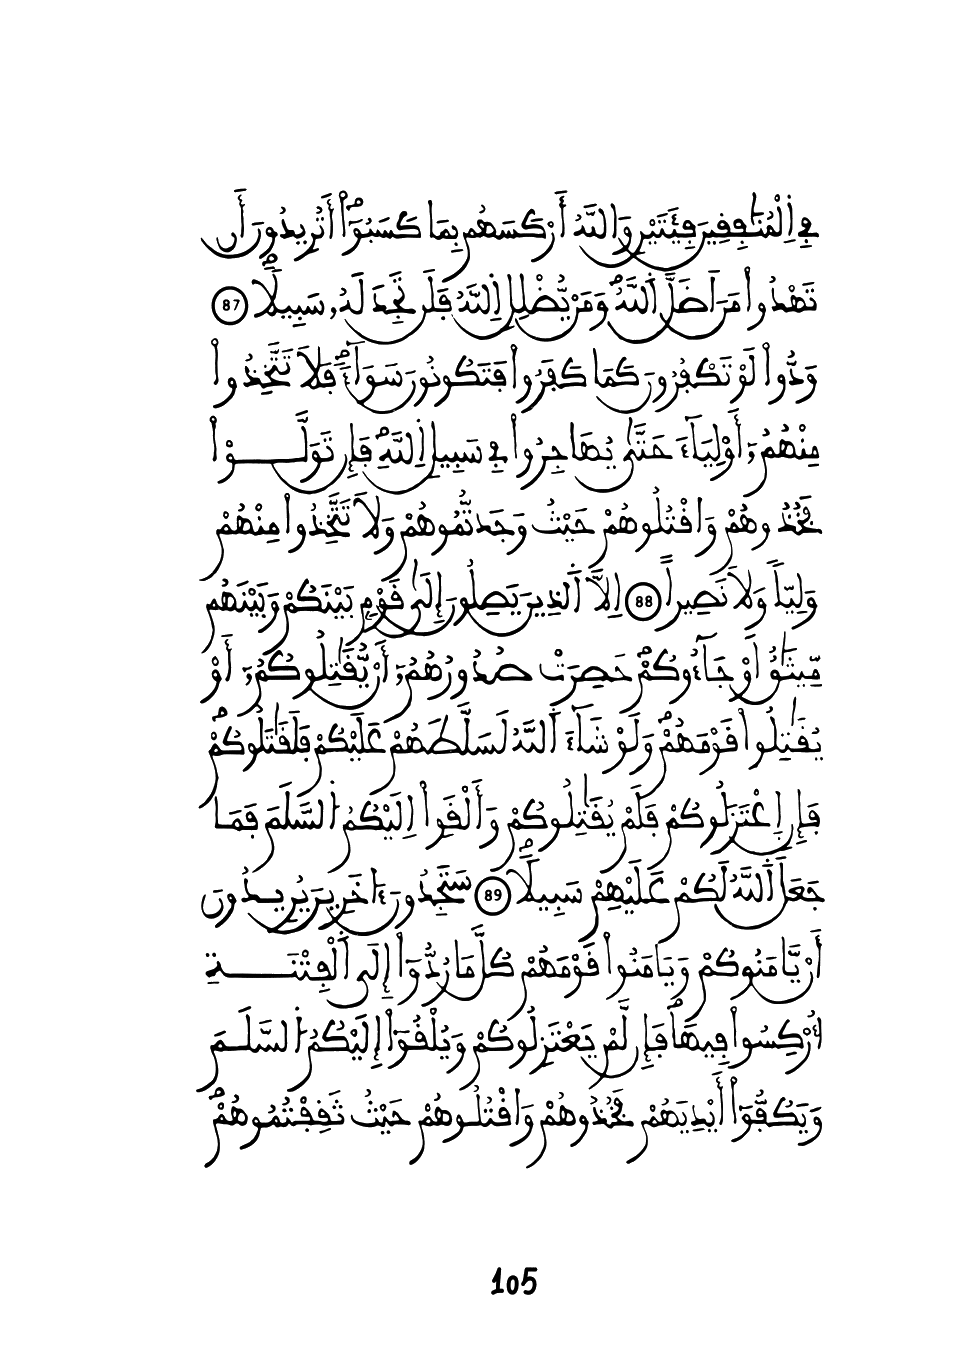 فِے اِ۬لْمُنَٰفِقِينَ فِئَتَيْنِ وَاللَّهُ أَرْكَسَهُم بِمَا كَسَبُوٓاْۖ أَتُرِيدُونَ أَن
تَهْدُواْ مَنَ اَضَلَّ اَ۬للَّهُۖ وَمَنْ يُّضْلِلِ اِ۬للَّهُ فَلَن تَجِدَ لَهُۥ سَبِيلاٗۖ 87
وَدُّواْ لَوْ تَكْفُرُونَ كَمَا كَفَرُواْ فَتَكُونُونَ سَوَآءٗۖ فَلَا تَتَّخِذُواْ
مِنْهُمُۥٓ أَوْلِيَآءَ حَتَّىٰ يُهَاجِرُواْ فِے سَبِيلِ اِ۬للَّهِۖ فَإِن تَوَلَّوْاْ
فَخُذُوهُمْ وَاقْتُلُوهُمْ حَيْثُ وَجَدتُّمُوهُمْ وَلَا تَتَّخِذُواْ مِنْهُمْ
وَلِيّاٗ وَلَا نَصِيراً 88 اِلَّا اَ۬لذِينَ يَصِلُونَ إِلَىٰ قَوْمِۢ بَيْنَكُمْ وَبَيْنَهُم
مِّيثَٰقٌ اَوْ جَآءُوكُمْ حَصِرَتْ صُدُورُهُمُۥٓ أَنْ يُّقَٰتِلُوكُمُۥٓ أَوْ
يُقَٰتِلُواْ قَوْمَهُمْۖ وَلَوْ شَآءَ اَ۬للَّهُ لَسَلَّطَهُمْ عَلَيْكُمْ فَلَقَٰتَلُوكُمْۖ
فَإِنِ اِ۪عْتَزَلُوكُمْ فَلَمْ يُقَٰتِلُوكُمْ وَأَلْقَوِاْ اِلَيْكُمُ اُ۬لسَّلَمَ فَمَا
جَعَلَ اَ۬للَّهُ لَكُمْ عَلَيْهِمْ سَبِيلاٗۖ 89 سَتَجِدُونَ ءَاخَرِينَ يُرِيدُونَ
أَنْ يَّامَنُوكُمْ وَيَامَنُواْ قَوْمَهُمْ كُلَّ مَا رُدُّوٓاْ إِلَى اَ۬لْفِتْنَةِ
أُرْكِسُواْ فِيهَاۖ فَإِن لَّمْ يَعْتَزِلُوكُمْ وَيُلْقُوٓاْ إِلَيْكُمُ اُ۬لسَّلَمَ
وَيَكُفُّوٓاْ أَيْدِيَهُمْ فَخُذُوهُمْ وَاقْتُلُوهُمْ حَيْثُ ثَقِفْتُمُوهُمْۖ
105